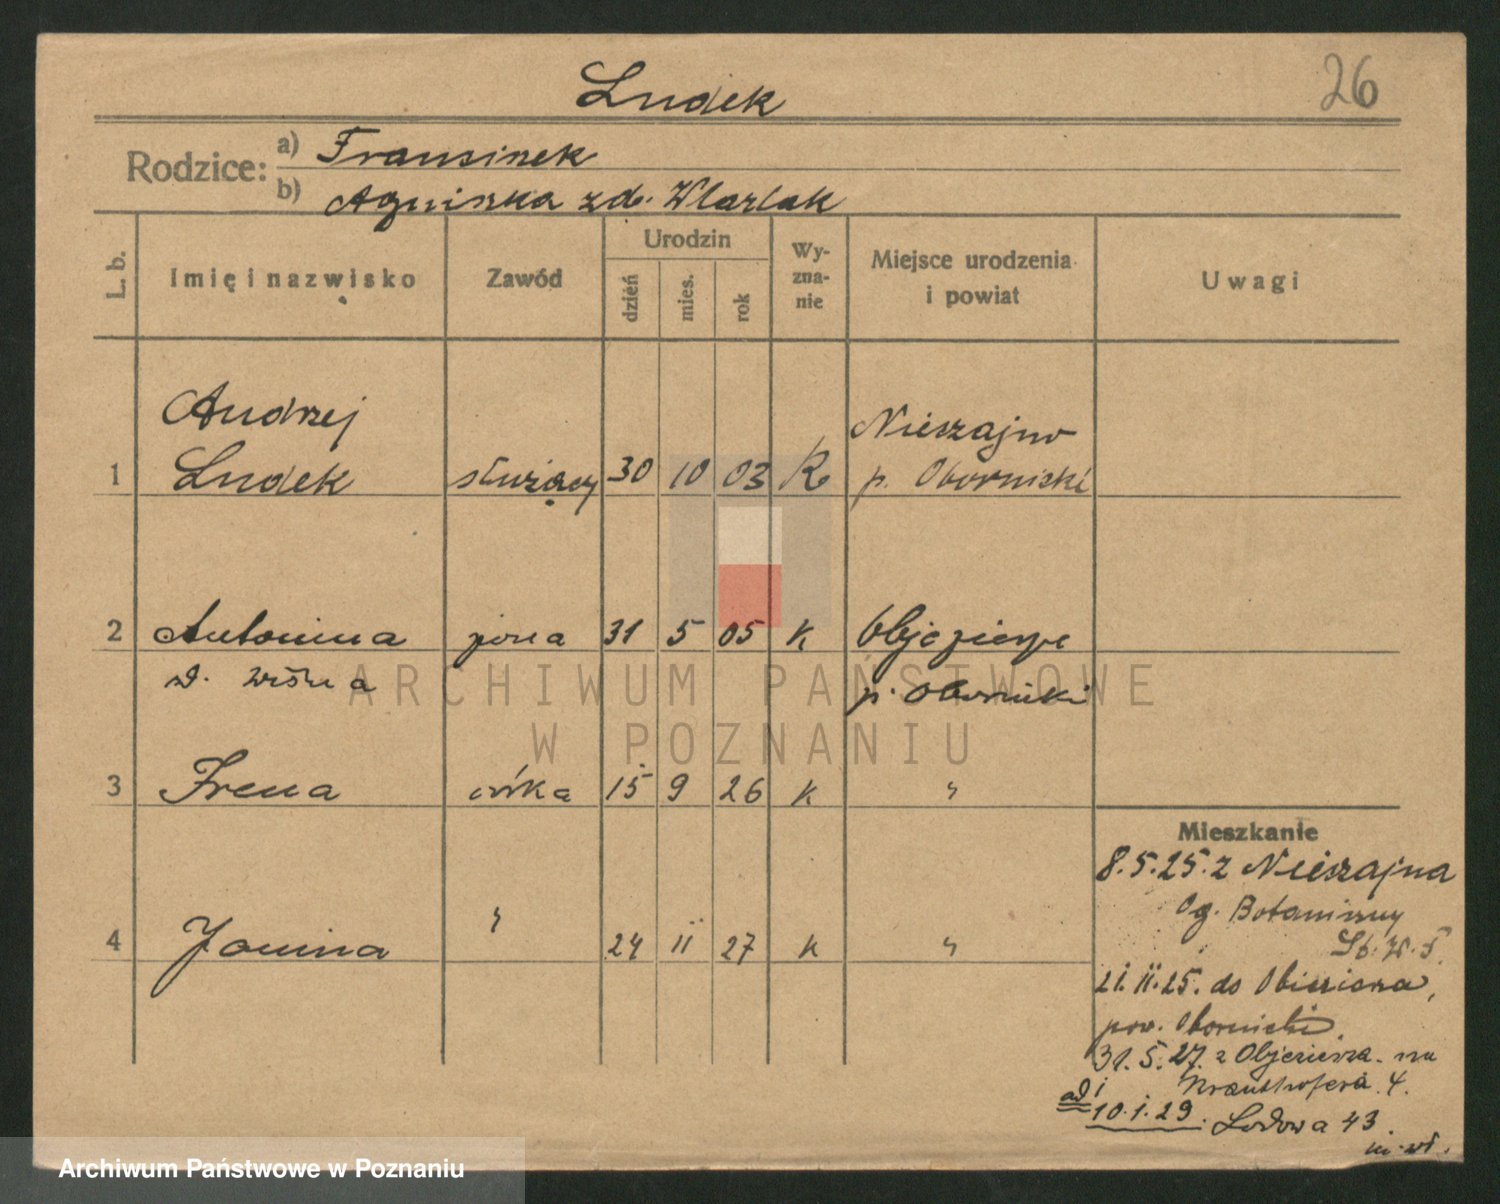 Ludek
26
Rodzice:
a) Fransisek
b) Agniska zd. Wlazlak
L. b.
Imię i nazwisko
Zawód
Urodzin
dzień
mies.
rok
Wy-
zna-
nie
Miejsce urodzenia
i powiat
Uwagi
Andrzej
Nieszajno
1 Ludek służący 30 10 03 R p. Obornicki
2 Antonina żona 31 5 05 k Objezierze
p. Oborniki
3 Irena córka 15 9 26 k "
4 Janina " 24 II 27 k "
Mieszkanie
8.5.25. z Nieszajna
Og. Botaniczny
21.II.25. do
pow. Obornicki.
31.5.27. z Objezierza na
Krauthofera 4.
ad 1
10.1.29. Lodowa 43.
ARCHIWUM PAŃSTWOWE
W POZNANIU
Archiwum Państwowe w Poznaniu